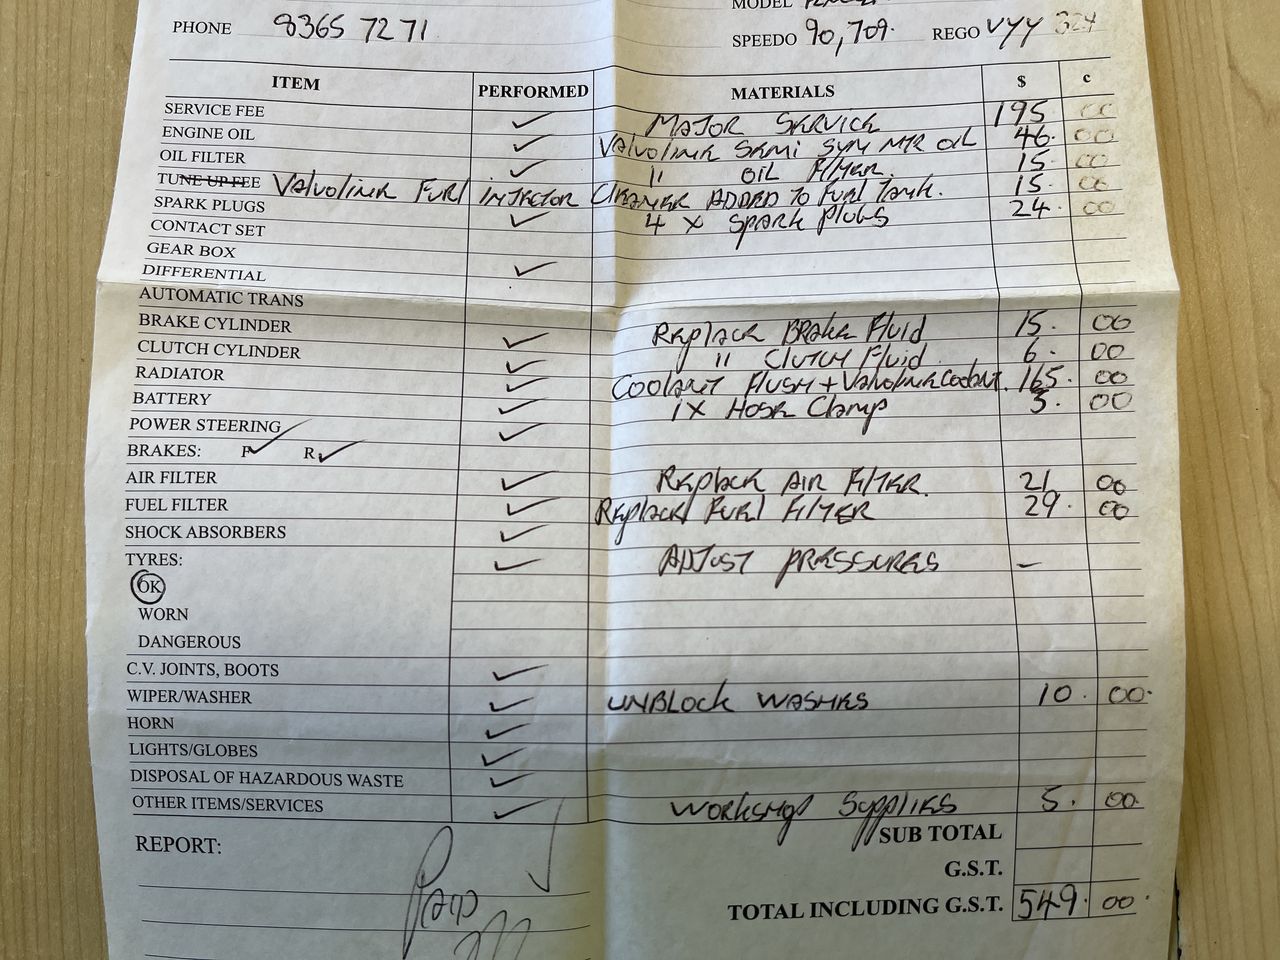 MODEL
PHONE 8365 7271 SPEEDO 90,709. REGO VYY 324
ITEM PERFORMED MATERIALS $ c
SERVICE FEE ✓ MAJOR SERVICE 195 00
ENGINE OIL ✓ VALVOLINE SEMI SYN MTR OIL 46. 00
OIL FILTER ✓ " OIL FILTER. 15 00
TUNE UP FEE VALVOLINE FUEL INJECTOR CLEANER ADDED TO FUEL TANK. 15. 00
SPARK PLUGS ✓ 4 X SPARK PLUGS 24. 00
CONTACT SET
GEAR BOX ✓
DIFFERENTIAL
AUTOMATIC TRANS
BRAKE CYLINDER ✓ REPLACE BRAKE FLUID 15. 00
CLUTCH CYLINDER ✓ " CLUTCH FLUID 6. 00
RADIATOR ✓ COOLANT FLUSH + VALVOLINE COOLANT. 165. 00
BATTERY ✓ 1X HOSE CLAMP 3. 00
POWER STEERING ✓
BRAKES: F ✓ R ✓
AIR FILTER ✓ REPLACE AIR FILTER. 21 00
FUEL FILTER ✓ REPLACE FUEL FILTER 29. 00
SHOCK ABSORBERS ✓
TYRES: ✓ ADJUST PRESSURES –
OK
WORN
DANGEROUS
C.V. JOINTS, BOOTS ✓
WIPER/WASHER ✓ UNBLOCK WASHERS 10. 00.
HORN ✓
LIGHTS/GLOBES ✓
DISPOSAL OF HAZARDOUS WASTE ✓
OTHER ITEMS/SERVICES ✓ WORKSHOP SUPPLIES 5. 00.
REPORT: SUB TOTAL
G.S.T.
PAID TOTAL INCLUDING G.S.T. 549. 00.